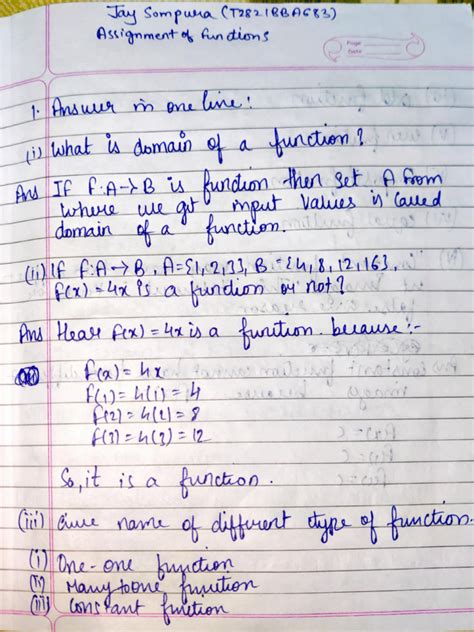 Jay Sompura (T2821BBA683)
Assignment of functions
Page
Date
1. Answer in one line:
(i) What is domain of a function?
Ans If f:A→B is function then set A from
where we get input values is called
domain of a function.
(ii) If f:A→B, A={1,2,3}, B={4,8,12,16},
f(x)=4x is a function or not?
Ans Hear f(x)=4x is a function because:-
f(x)=4x
f(1)=4(1)=4
f(2)=4(2)=8
f(3)=4(3)=12
So, it is a function.
(iii) Give name of different type of function.
(i) One-one function
(ii) Many to one function
(iii) constant function